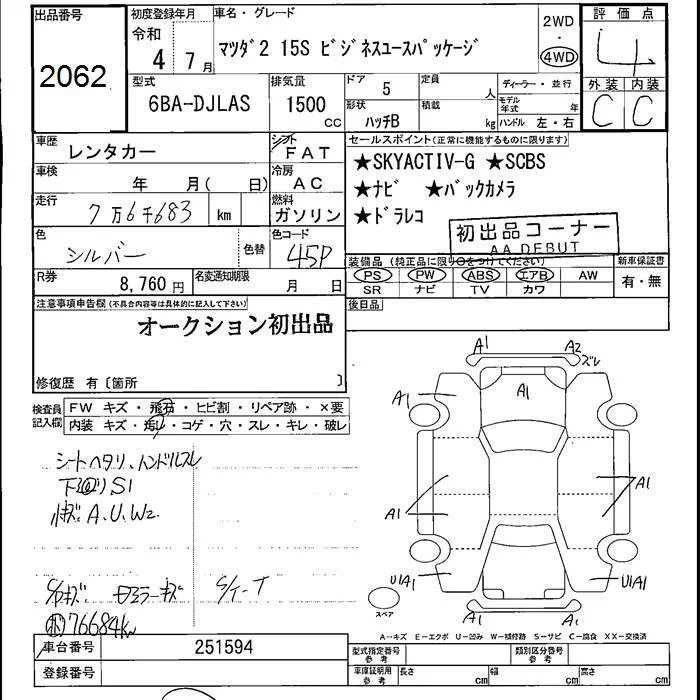 出品番号 初度登録年月 車名・グレード 2WD 評価点
2062 令和 4 7月 マツダ2 15S ビジネスユースパッケージ 4WD 4
型式 排気量 ドア 5 定員 人 ディーラー・並行 外装 内装
6BA-DJLAS 1500 CC 形状 ハッチB 積載 kg モデル年式 年 ハンドル 左・右 C C
車歴 レンタカー シフト FAT セールスポイント(正常に機能するものに限ります)
車検 年 月( 日) 冷房 AC ★SKYACTIV-G ★SCBS
走行 7万6千683 km 燃料 ガソリン ★ナビ ★バックカメラ
色 シルバー 色替 色コード 45P ★ドラレコ
初出品コーナー
AA DEBUT
R券 8,760円 名変通知期限 月 日 装備品(純正品に限り○をつけてください) 新車保証書
PS PW ABS エアB AW 有・無
SR ナビ TV カワ
注意事項申告欄(不具合内容等は具体的に記入して下さい) 後日品
オークション初出品
修復歴 有〔箇所 〕
検査員記入欄 FW キズ・飛石・ヒビ割・リペア跡・×要
内装 キズ・汚レ・コゲ・穴・スレ・キレ・破レ
シートヘタリ、ハンドルスレ
下回りS1
小キズ、A、U、W2
76684km
A1 A2 ズレ
A1 A1
A1 A1
UA1 UA1
スペア
A-キズ E-エクボ U-凹み W-補修跡 S-サビ C-腐食 XX-交換済
車台番号 251594 型式指定番号 参考 類別区分番号 参考
登録番号 車庫証明用 参考 長さ cm 幅 cm 高さ cm